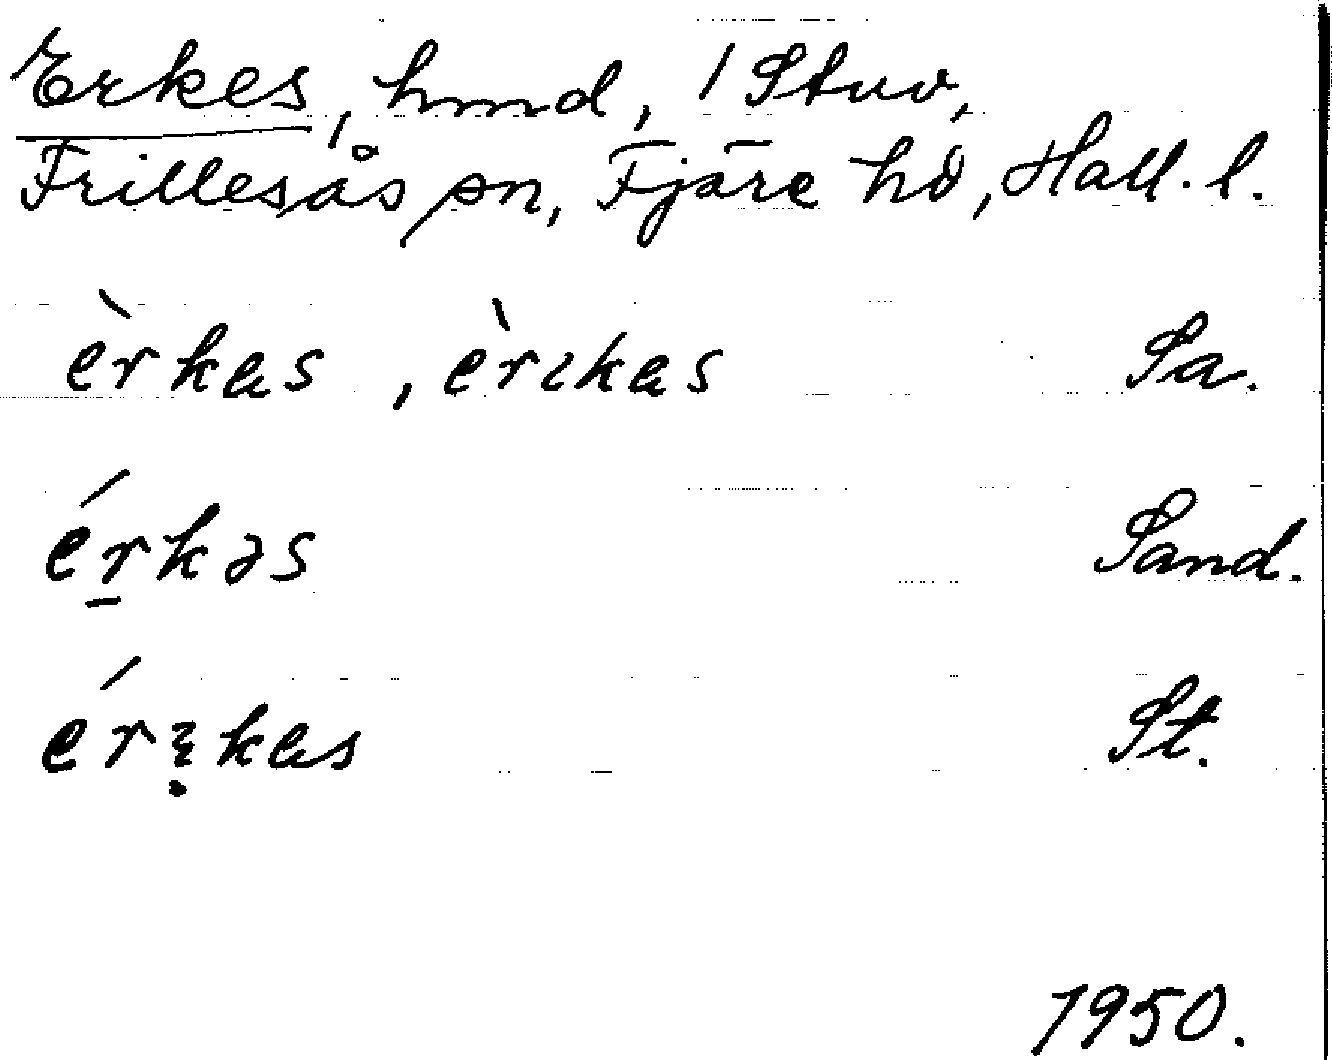 Erkes, hmd, 1 Stuv,
Frillesås sn, Fjäre hd, Hall. l.
èrkas, èrıkas Sa.
érkəs Sand.
kas St.
1950.